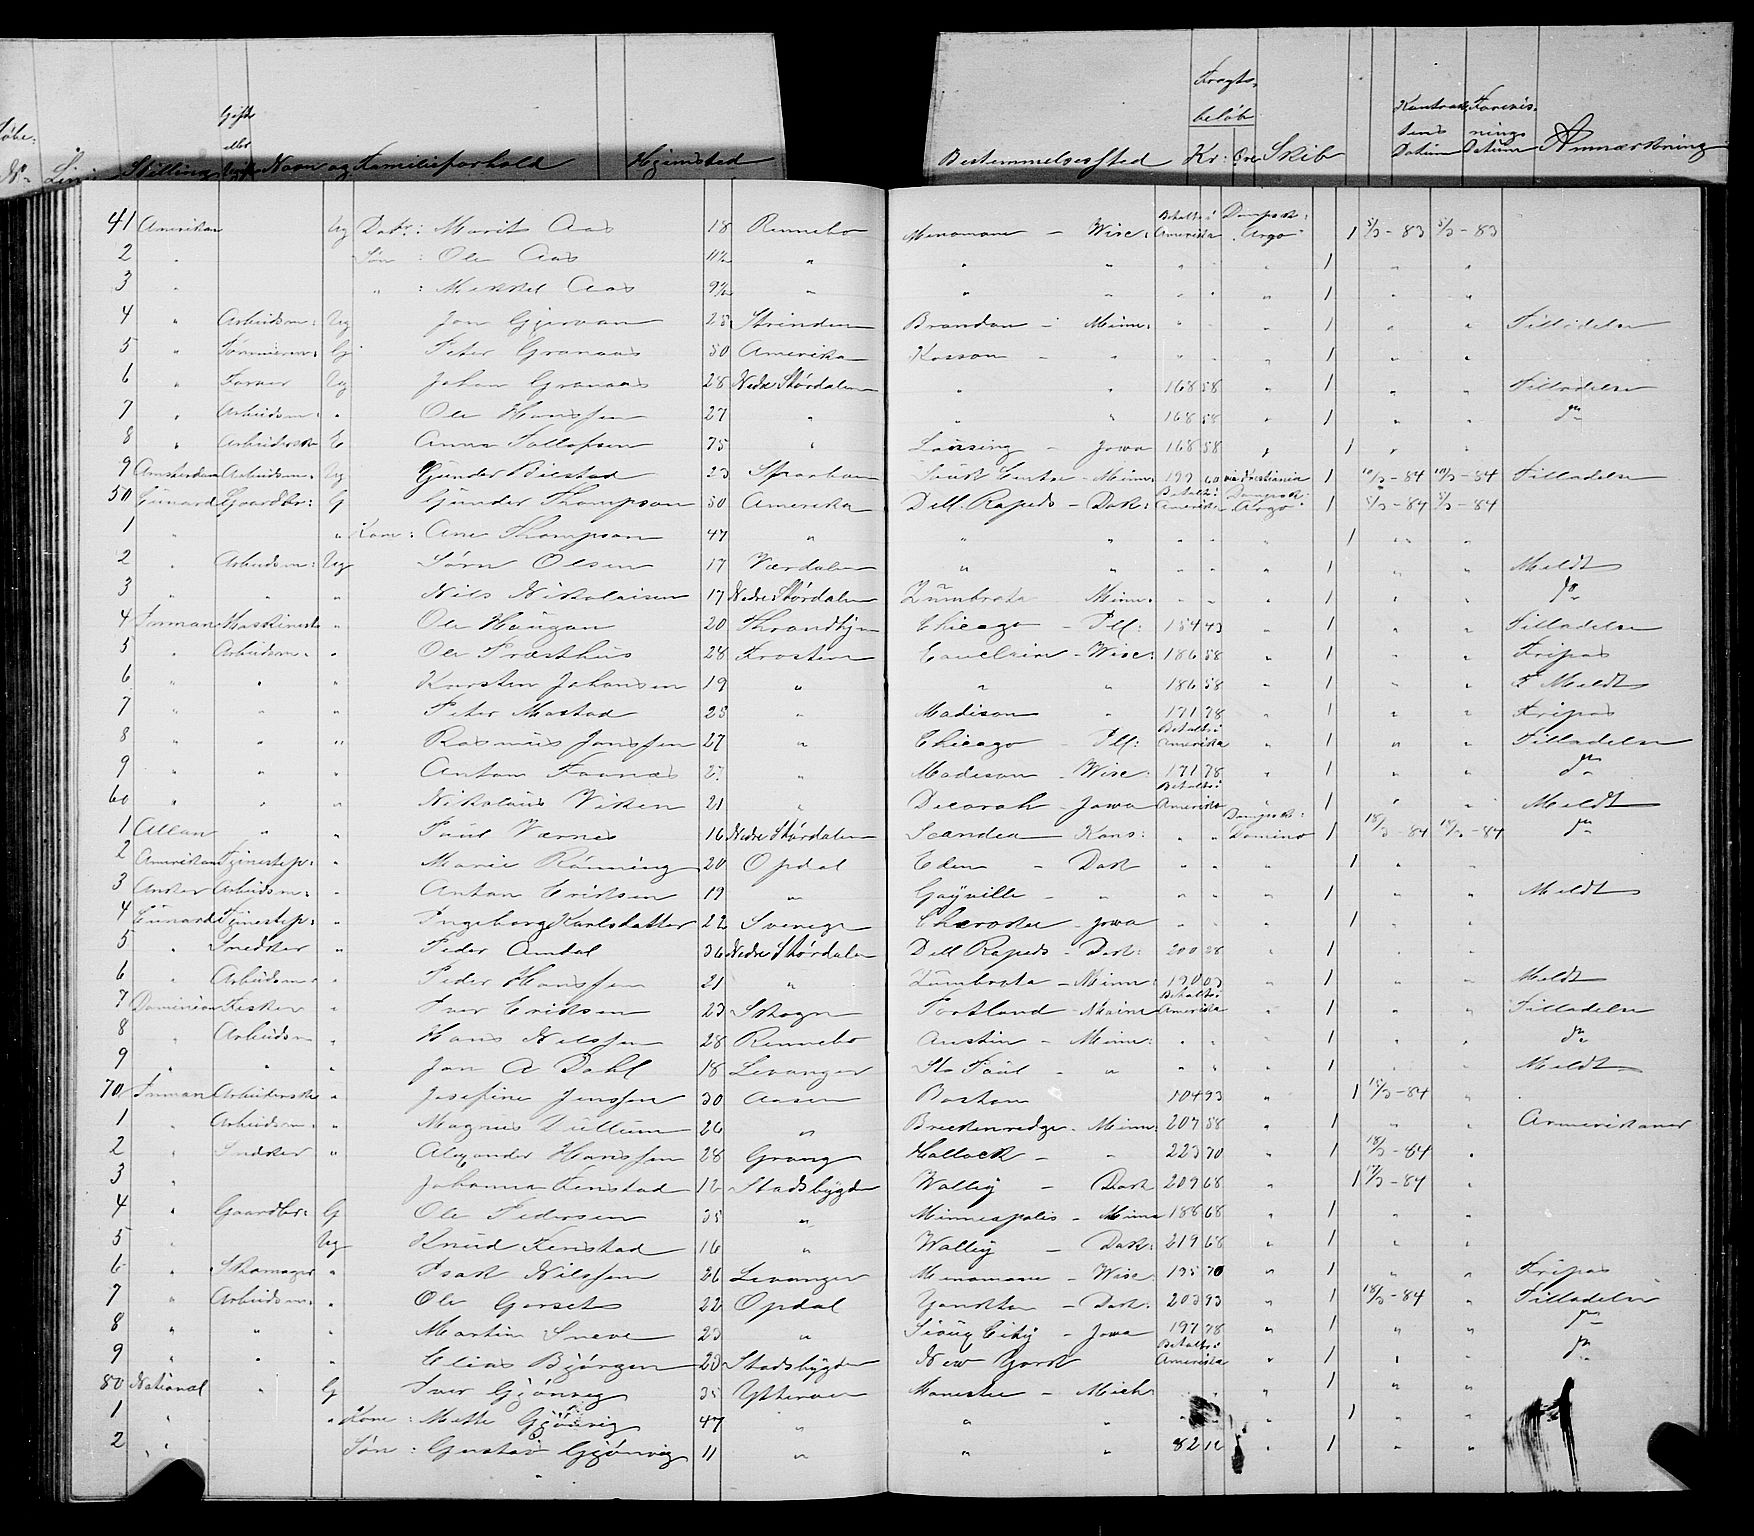 Löbe: No Linie Stilling Gift eller Navn og Familieforhold Hjemsted Bestemmelsessted Fragtbeløb Kr: Öre Skib Datum Datum Anmærkning
41 Amerikan Ug Datr: Marit Aas 18 Rennebo Menomonie - Wisc: Betalt i Amerika Dampsk: Argo 1 5/3-83 5/3-83
2 " Søn: Ole Aas 11½ " " " " " " 1 " "
3 " " : Mikkel Aas 9½ " " " " " " 1 " "
4 " Arbeidsm: Ug Jon 25 Strinden Brandon - Minn: " " " 1 " " Tilladelse
5 " Tömmerm: G Peter Granaas 50 Amerika Kasson - " " " " 1 " "
6 " Farver Ug Johan Granaas 28 Nedre Stördalen " " 168 58 " 1 " " Tilladelse
7 " Arbeidsm: " Ole Hanssen 27 " " " 168 58 " 1 " " do
8 " Arbeiderske E Anna Tollefsen 75 " Lansing - Jowa 168 58 " 1 " "
9 Amsterdam Arbeidsm: Ug Gunder Bilstad 23 Sparbuen Sauk Center - Minn: 199 60 via Kristiania 1 10/3-84 10/3-84 Tilladelse
50 Cunard Gaardbr: G Gunder Thompson 50 Amerika Dell. Rapids - Dak: Betalt i Amerika Dampsk: Argo 1 5/3-84 5/3-84
1 " " Kone: Ane Thompson 47 " " " " " " 1 " "
2 " Arbeidsm: Ug Sörn Olsen 17 Værdalen " " " " " 1 " " Meldt
3 " " " Nils Nikolaisen 17 Nedre Stördalen Zumbrota Minn: " " " 1 " " do
4 Inman Maskinist " Ole Haugan 20 Throndhjem Chicago - Ill: 154 43 " 1 " " Tilladelse
5 " Arbeidsm: " Ole Præsthus 28 Frosten - Wisc: 186 58 " 1 " " Fripas
6 " " " Karsten Johansen 19 " " " 186 58 " 1 " " Meldt
7 " " " Peter Mostad 23 " Madison " 171 78 " 1 " " Fripas
8 " " " Rasmus Jonssen 27 " Chicago - Ill: Betalt i Amerika " 1 " " Tilladelse
9 " " " Anton 27 " Madison - Wisc: 171 78 " 1 " " do
60 " " " Nikolaus Viken 21 " Decorah - Jowa Betalt i Amerika " 1 " " Meldt
1 Allan " " Paul Værnes 16 Nedre Stördalen Scandia Kans: " " Dampsk: Domino 1 18/3-84 18/3-84 do
2 Amerikan Tjenestep: " Marie Rönning 20 Opdal Eden - Dak " " " 1 " "
3 Anker Arbeidsm: " Anton Eriksen 19 " Gayville - " " " " 1 " " Meldt
4 Cunard Tjenestep: " Ingeborg Karlsdatter 22 Sverige Cherokee - Jowa " " " 1 " "
5 " Snedker " Peder Amdal 36 Nedre Stördalen Dell Rapids - Dak: 200 28 " 1 " "
6 " Arbeidsm: " Peder Hanssen 21 " Zumbrota - Minn: 190 03 " 1 " " Meldt
7 Dominion Fisker " Iver Eriksen 23 Skogn Portland - Maine Betalt i Amerika " 1 " " Tilladelse
8 " Arbeidsm " Hans Nilssen 28 Rennebo Austin - Minn: " " " 1 " " do
9 " " " Jon A Dahl 18 Levanger St. Paul - " " " " 1 " " Meldt
70 Inman Arbeiderske " Josefine Jenssen 30 Aasen Boston 104 93 " 1 15/3-84 " "
1 " Arbeidsm: " Magnus Dullum 26 " Breckenredge - Minn: 207 58 " 1 " " Amerikaner
2 " Snedker " Alexander Hanssen 28 Grong Hallock - " 223 70 " 1 18/3-84 "
3 " Johanna Fenstad 12 Stadsbygden Walley - Dak 209 68 " 1 17/3-84 "
4 " Gaardbr: G Ole Pedersen 35 " Minneapolis - Minn 188 68 " 1 " "
5 " Ug Knud Fenstad 16 " Walley - Dak: 219 68 " 1 " "
6 " Skomager " Isak Nilssen 26 Levanger Menomonie - Wisc: 195 70 " 1 " " Fripas
7 " Arbeidsm: " Ole Gorset 22 Opdal Yankton - Dak: 203 93 " 1 18/3-84 " Tilladelse
8 " " " Martin Sneve 23 " Sioux City - Jowa 197 78 " 1 " " do
9 " " " Elias Bjørgen 23 Stadsbygden New York Betalt i Amerika " 1 " " do
80 National " G Iver Gjönvig 35 Ytterøen Manistee - Mich: " " " 1 " "
1 " " Kone: Mette Gjönvig 47 " " " " " 1 " "
2 " " Søn: Gustav Gjönvig 11 " " " 82 12 " 1 " "